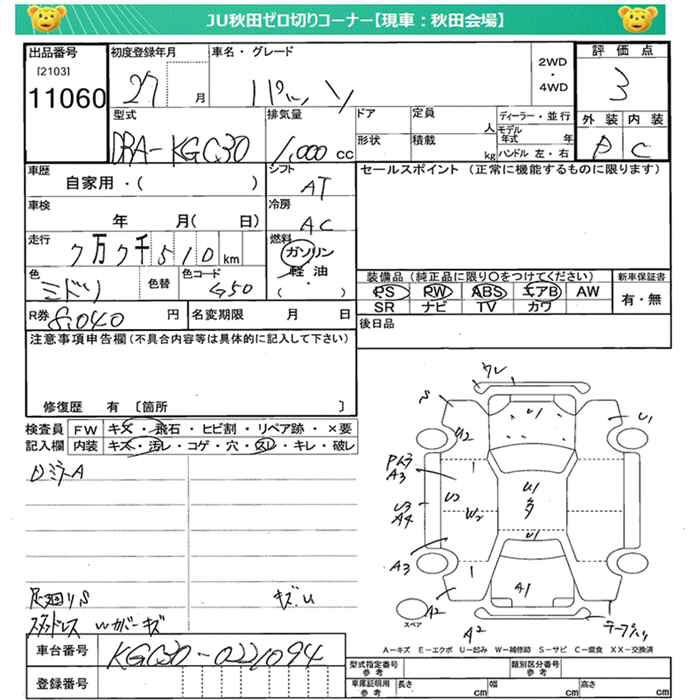 JU秋田ゼロ切りコーナー【現車：秋田会場】
出品番号
[2103]
11060
初度登録年月
27 月
車名・グレード
2WD
・
4WD
評価点
3
外装 内装
C
型式
DBA-KGC30
排気量
1,000 cc
ドア
定員
人
形状
積載
kg
ディーラー・並行
モデル
年式 年
ハンドル 左・右
車歴
自家用・( )
シフト
AT
セールスポイント (正常に機能するものに限ります)
車検
年 月( 日)
冷房
AC
走行
7万7千510km
燃料
ガソリン
軽油
・
( )
装備品(純正品に限り〇をつけてください)
PS PW ABS エアB AW
SR ナビ TV カワ
新車保証書
有・無
色
ミドリ
色替
色コード
G50
R券 8,040 円
名変期限 月 日
後日品
注意事項申告欄(不具合内容等は具体的に記入して下さい)
修復歴 有 〔箇所 〕
検査員
記入欄
FW キズ・飛石・ヒビ割・リペア跡・×要
内装 キズ・汚レ・コゲ・穴・スレ・キレ・破レ
DミラーA
足廻りS
キズU
Wカバーキズ
ワレ
S
U1
U1
U2
A3
U1
U2
W2
U3
A4
A3
U1
A1
A2
A2
スペア
A-キズ E-エクボ U-凹み W-補修跡 S-サビ C-腐食 XX-交換済
車台番号
KGC30-0221094
登録番号
型式指定番号
参考
類別区分番号
参考
車庫証明用
参考
長さ cm
幅 cm
高さ cm